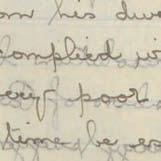 om his dwe
complied wi
ery poor
time be en